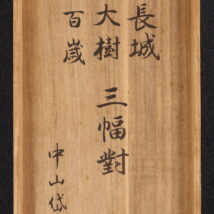 長城
大樹 三幅對
百歳
中山岱